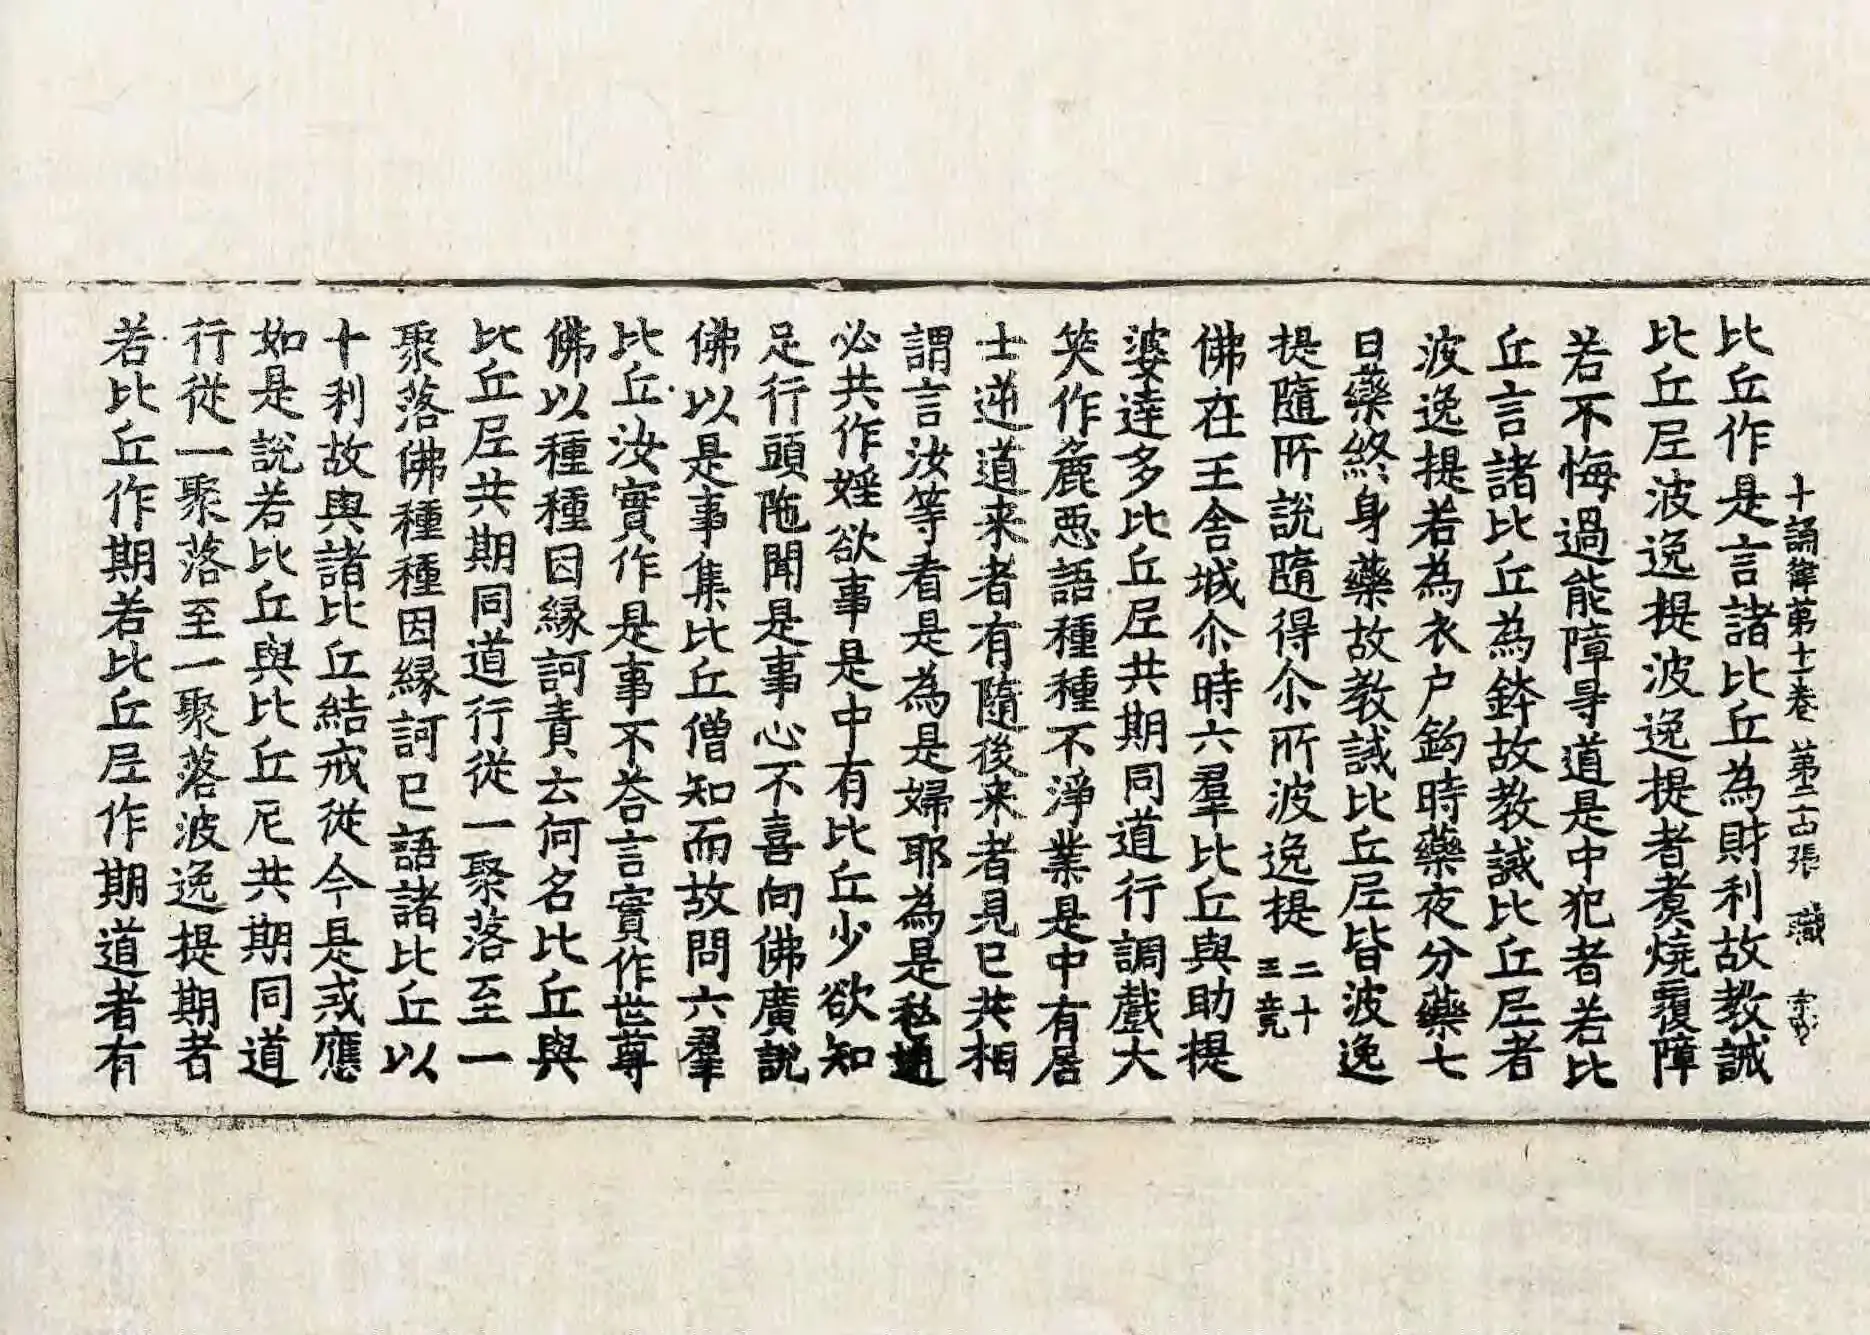 十誦律第十一卷 第二十四張 職
比丘作是言諸比丘為財利故教誡
比丘尼波逸提波逸提者煑燒覆障
若不悔過能障㝵道是中犯者若比
丘言諸比丘為鉢故教誡比丘尼者
波逸提若為衣户鈎時藥夜分藥七
日藥終身藥故教誡比丘尼皆波逸
提隨所說隨得尒所波逸提二十三竟
佛在王舍城尒時六羣比丘與助提
婆達多比丘尼共期同道行調戲大
笑作麁惡語種種不淨業是中有居
士逆道来者有隨後来者見已共相
謂言汝等看是為是婦耶為是私通
必共作婬欲事是中有比丘少欲知
足行頭陁聞是事心不喜向佛廣說
佛以是事集比丘僧知而故問六羣
比丘汝實作是事不荅言實作世尊
佛以種種因縁訶責云何名比丘與
比丘尼共期同道行從一聚落至一
聚落佛種種因縁訶已語諸比丘以
十利故與諸比丘結戒從今是戒應
如是說若比丘與比丘尼共期同道
行從一聚落至一聚落波逸提期者
若比丘作期若比丘尼作期道者有